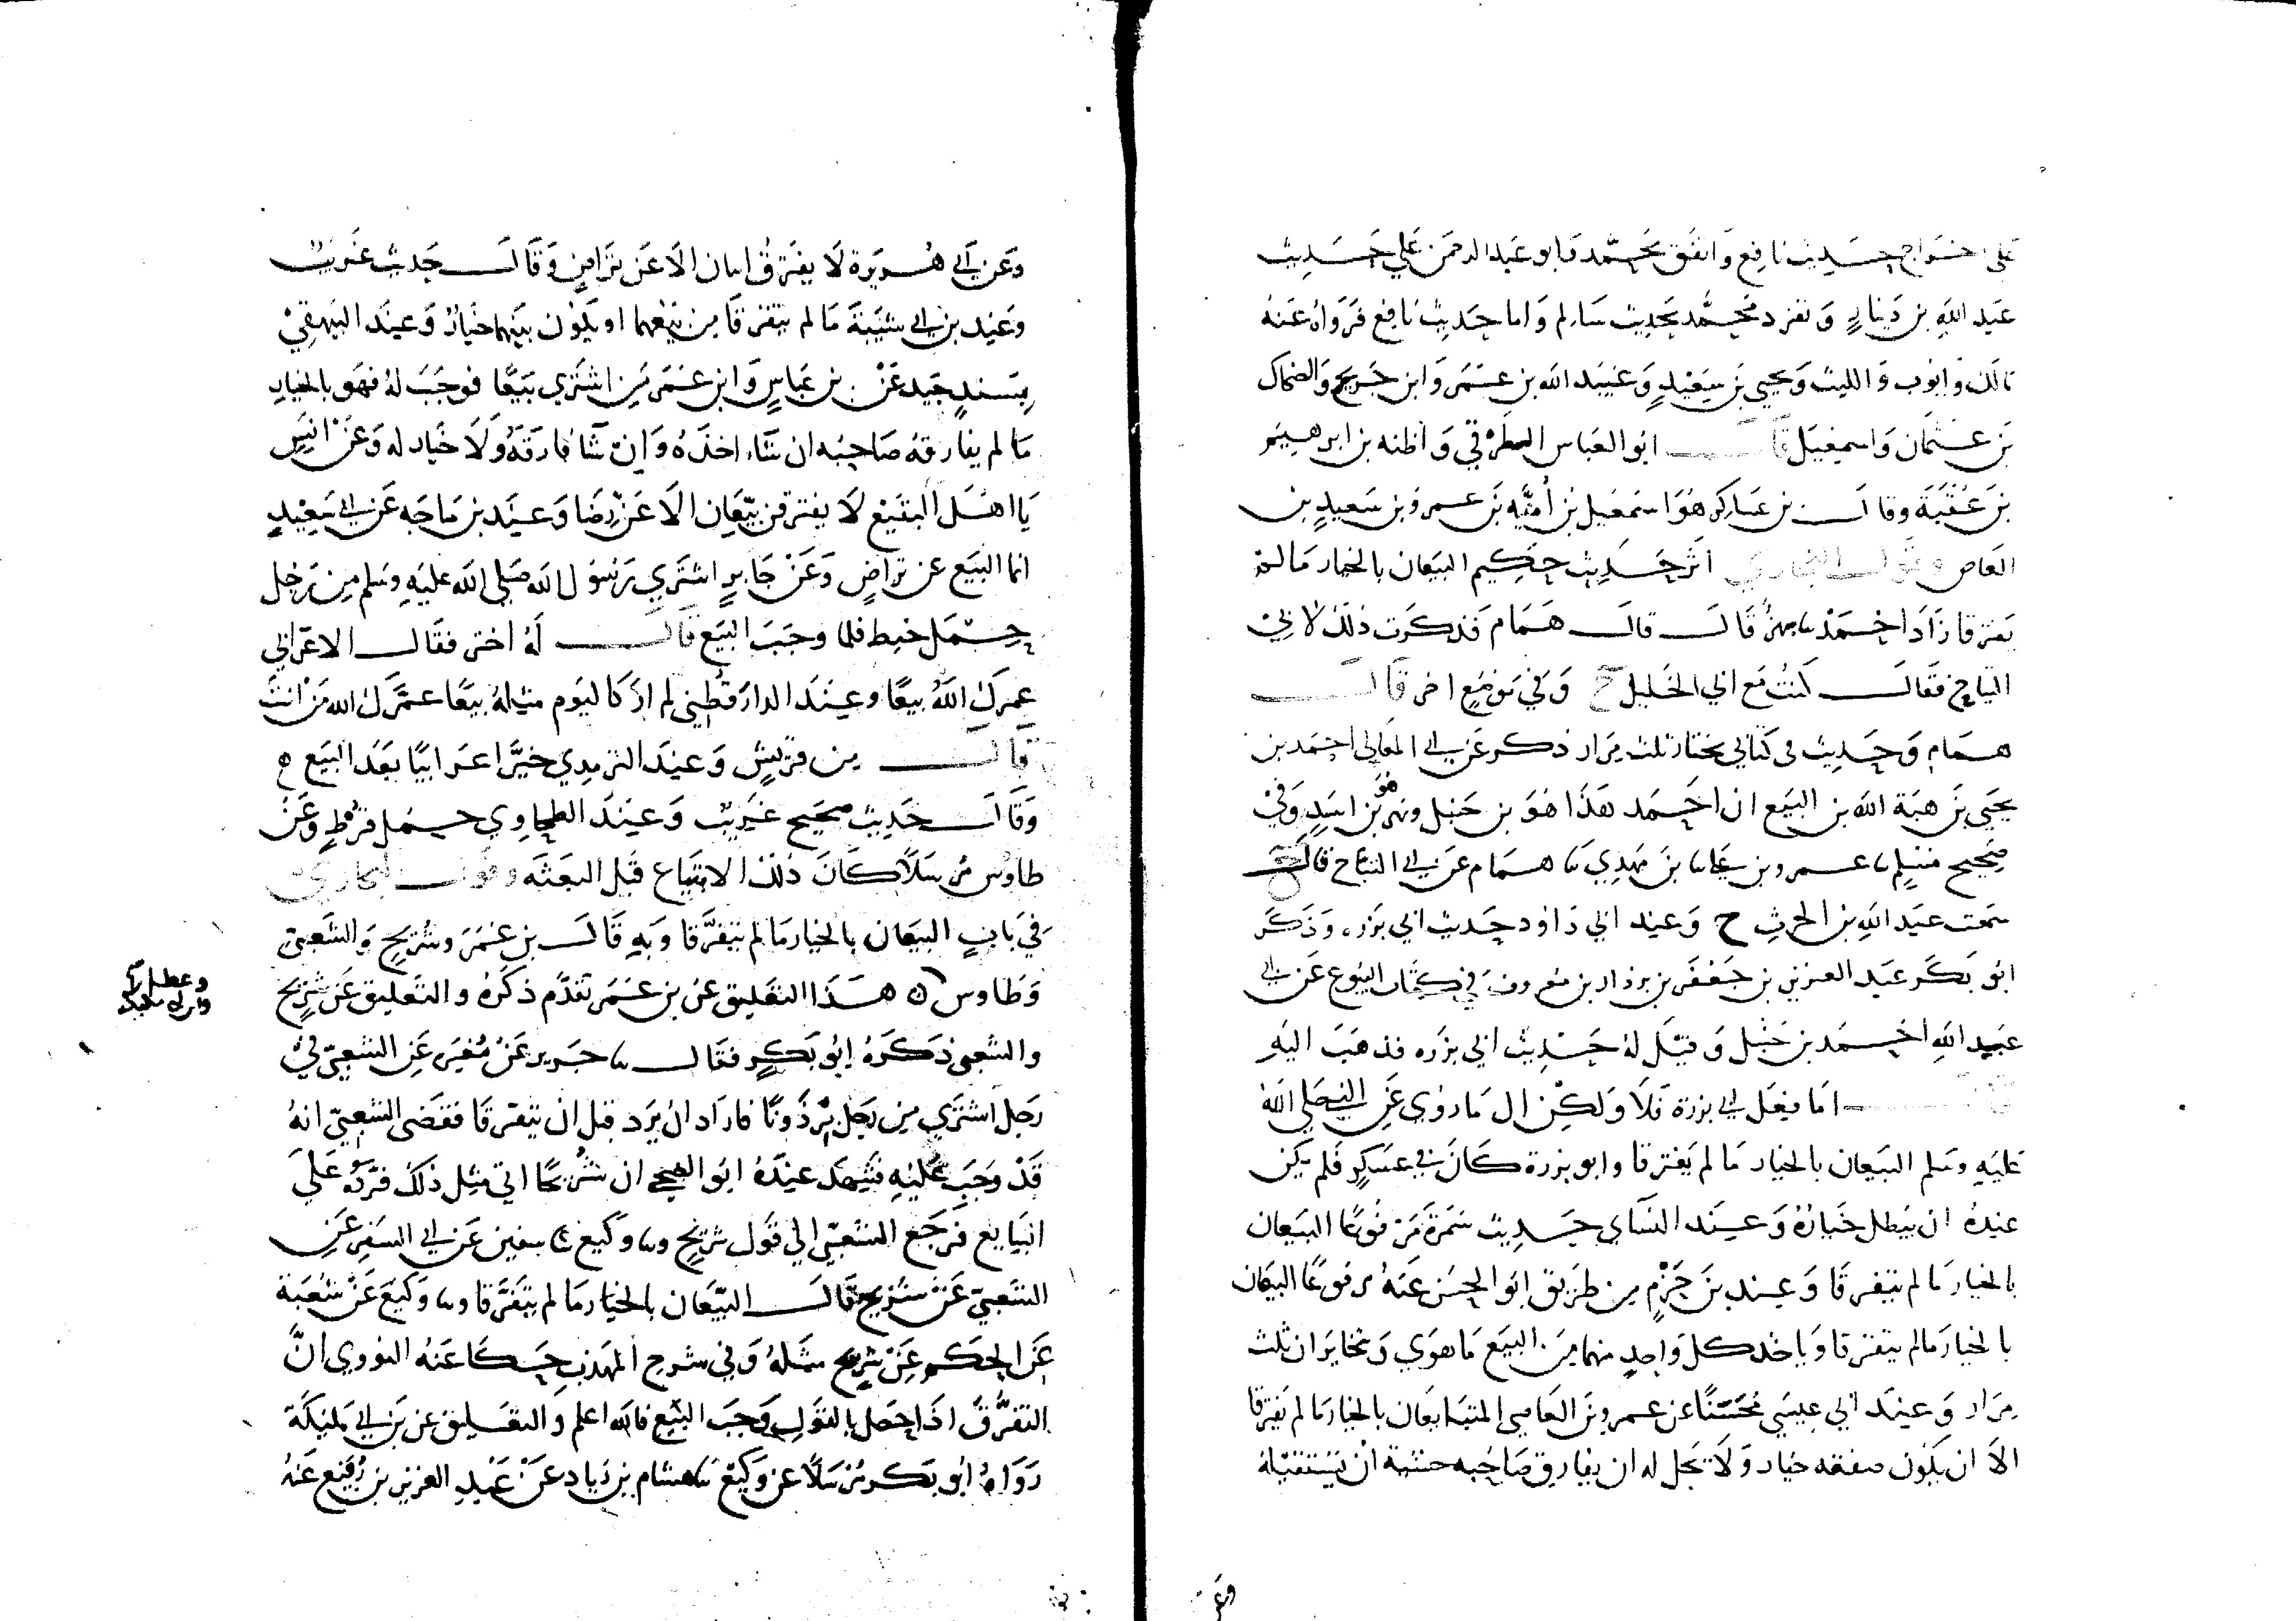 على اخراج حديث نافع واتفق محمد وابو عبد الرحمن علي حديث
عبد الله بن دينار وتفرد محمد بحديث سالم واما حديث نافع فرواه عنه
مالك وايوب والليث ويحيي بن سعيد وعبيد الله بن عمر وابن جريج والضحاك
بن عثمان واسمعيل قال ابو العباس الطرقي واظنه بن ابرهيم
بن عقبة وقال بن عساكر هو اسمعيل بن امية بن عمرو بن سعيد بن
العاص وقول البخاري اثر حديث حكيم البيعان بالخيار مالم
يفترقا زاد احمد ثنا بهز قال قال همام فذكرت ذلك لابي
التياح فقال كنت مع ابي الخليل ح وفي موضع اخر قال
همام وجدت في كتابي يختار ثلث مرار ذكر عن ابي المعالي احمد بن
يحيي بن هبة الله بن البيع ان احمد هذا هو بن حنبل وبهز هو بن اسد وفي
صحيح مسلم ثنا عمرو بن علي ثنا بن مهدي ثنا همام عن ابي التياح قال
سمعت عبد الله بن الحرث ح وعند ابي داود حديث ابي برزه وذكر
ابو بكر عبد العزيز بن جعفر بن يزداد بن معروف في كتاب البيوع عن ابي
عبد الله احمد بن حنبل وقيل له حديث ابي برزه فذهب اليه
اما فعل ابي برزة فلا ولكن ال ما روي عن النبي صلي الله
عليه وسلم البيعان بالخيار ما لم يفترقا وابو برزة كان في عسكر فلم يكن
عنده ان يبطل خياره وعند النساي حديث سمرة مرفوعا البيعان
بالخيار ما لم يتفرقا وعند بن حزم من طريق ابو الحسن عنه مرفوعا البيعان
بالخيار مالم يتفرقا وياخذ كل واحد منهما من البيع ما هوي ويتخايران ثلث
مرار وعند ابي عيسي محسنا عن عمرو بن العاصي المتبايعان بالخيار ما لم يفترقا
الا ان يكون صفقه خيار ولا يحل له ان يفارق صاحبه خشية ان يستقيله
وعن
وعن ابي هريرة لا يفترق اثنان الا عن تراض وقال حديث غريب
وعند بن ابي شيبة ما لم يتفرقا من بيعهما او يكون بينهما خيار وعند البيهقي
بسند جيد عن بن عباس وابن عمر من اشتري بيعا فوجب له فهو بالخيار
ما لم يفارقه صاحبه ان شاء اخذه وان شا فارقه ولا خيار له وعن انس
يا اهل البقيع لا يفترقن بيعان الا عن رضا وعند بن ماجه عن ابي سعيد
انما البيع عن تراض وعن جابر اشتري رسول الله صلي الله عليه وسلم من رجل
حمل خبط فلما وجب البيع قال له اختر فقال الاعرابي
عمرك الله بيعا وعند الدارقطني لم ار كاليوم مثله بيعا عمرك الله من انت
قال من قريش وعند الترمدي خير اعرابيا بعد البيع ه
وقال حديث صحيح غريب وعند الطحاوي حمل قرظ وعن
طاوس مرسلا كان ذلك الابتياع قبل البعثه وقول البخاري
في باب البيعان بالخيار ما لم يتفرقا وبه قال بن عمر وشريح والشعبي
وطاوس ه هذا التعليق عن بن عمر تقدم ذكره والتعليق عن شريح
وعطا
وابن ابي مليكة
والشعبي ذكره ابو بكر فقال ثنا جرير عن مغيرة عن الشعبي في
رجل اشتري من رجل برذونا فاراد ان يرد قبل ان يتفرقا فقضى الشعبي انه
قد وجب عليه فشهد عنده ابو الضحي ان شريحا اتي مثل ذلك فرده علي
البايع فرجع الشعبي الي قول شريح وثنا وكيع ثنا سفين عن ابي السفر عن
الشعبي عن شريح قال البيعان بالخيار ما لم يتفرقا وثنا وكيع عن شعبة
عن الحكم عن شريح مثله وفي شرح المهذب حكا عنه النووي ان
التفرق اذا حصل بالقول وجب البيع فالله اعلم والتعليق عن بن ابي مليكة
رواه ابو بكر مرسلا عن وكيع ثنا هشام بن زياد عن عبد العزيز بن رفيع عنه